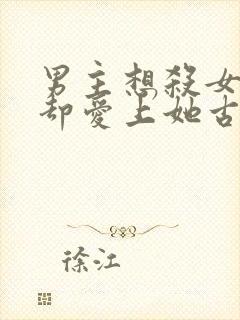 男主想殺女
却愛上她古
徐江